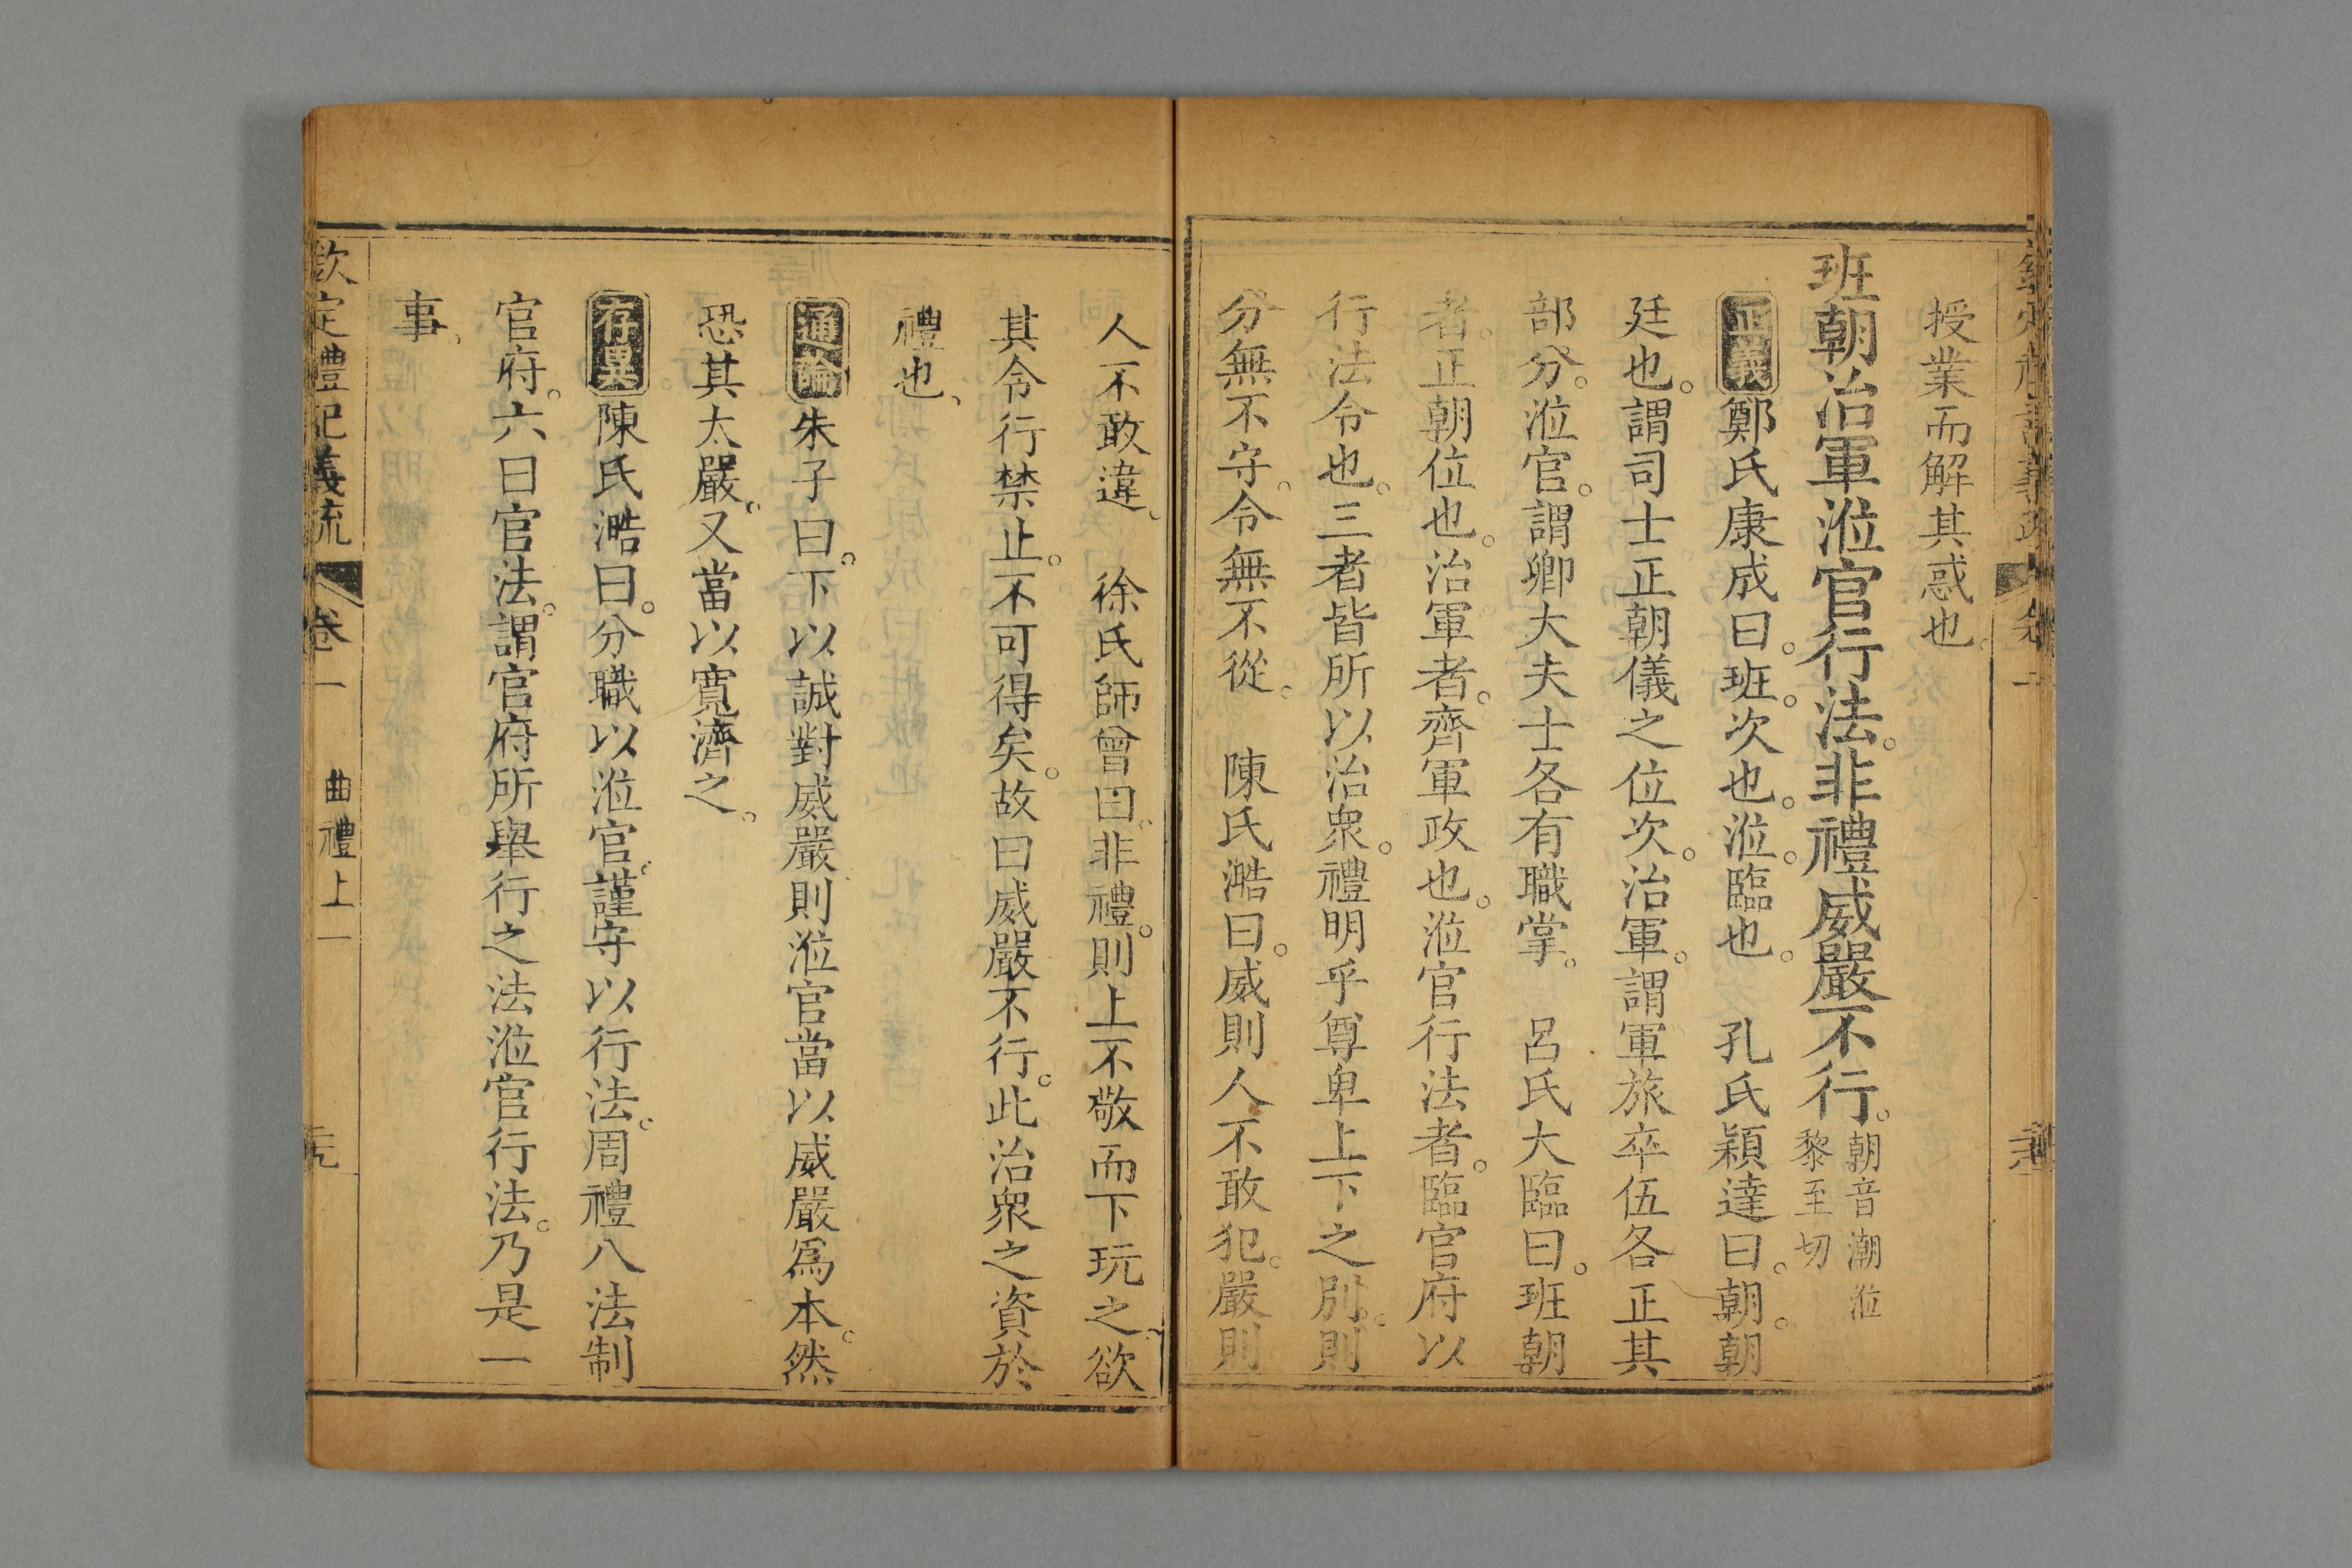 授業而解其惑也。
班朝治軍涖官行法。非禮威嚴不行。朝音潮涖
黎至切
正義鄭氏康成曰。班。次也。涖。臨也。　孔氏穎達曰。朝。朝
廷也。謂司士正朝儀之位次。治軍。謂軍旅卒伍各正其
部分。涖官。謂卿大夫士各有職掌。　呂氏大臨曰。班朝
者。正朝位也。治軍者。齊軍政也。涖官行法者。臨官府以
行法令也。三者皆所以治衆。禮明乎尊卑上下之別。則
分無不守。令無不從。　陳氏澔曰。威則人不敢犯。嚴則
人不敢違。　徐氏師曾曰。非禮。則上不敬而下玩之。欲
其令行禁止。不可得矣。故曰威嚴不行。此治衆之資於
禮也。
通論朱子曰。下以誠對威嚴則涖官當以威嚴爲本。然
恐其太嚴。又當以寬濟之。
存異陳氏澔曰。分職以涖官。謹守以行法。周禮八法制
官府。六曰官法。謂官府所舉行之法涖官行法。乃是一
事。
欽定禮記義疏 卷一 曲禮上一